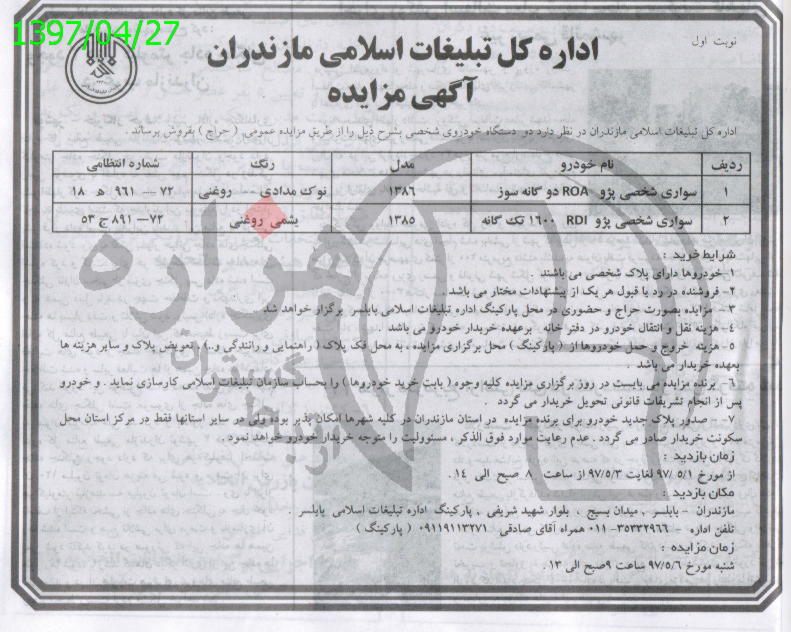 1397/04/27
نوبت اول
اداره کل تبلیغات اسلامی مازندران
آگهی مزایده
اداره کل تبلیغات اسلامی مازندران در نظر دارد دو دستگاه خودروی شخصی بشرح ذیل را از طریق مزایده عمومی ( حراج ) بفروش برساند .
ردیف نام خودرو مدل رنگ شماره انتظامی
۱ سواری شخصی پژو ROA دو گانه سوز ۱۳۸۶ نوک مدادی - روغنی ۷۲ – ۹۶۱ هـ ۱۸
۲ سواری شخصی پژو RDI ۱۶۰۰ تک گانه ۱۳۸۵ یشمی روغنی ۷۲– ۸۹۱ ج ۵۳
شرایط خرید :
۱-خودروها دارای پلاک شخصی می باشند
۲- فروشنده در رد یا قبول هر یک از پیشنهادات مختار می باشد
۳ - مزایده بصورت حراج و حضوری در محل پارکینگ اداره تبلیغات اسلامی بابلسر برگزار خواهد شد
۴- هزینه نقل و انتقال خودرو در دفتر خانه برعهده خریدار خودرو می باشد .
۵- هزینه خروج و حمل خودروها از ( پارکینگ ) محل برگزاری مزایده ، به محل فک پلاک ( راهنمایی و رانندگی و..) ، تعویض پلاک و سایر هزینه ها
بعهده خریدار می باشد .
۶- برنده مزایده می بایست در روز برگزاری مزایده کلیه وجوه ( بابت خرید خودروها ) را بحساب سازمان تبلیغات اسلامی کارسازی نماید . و خودرو
پس از انجام تشریفات قانونی تحویل خریدار می گردد .
۷- صدور پلاک جدید خودرو برای برنده مزایده در استان مازندران در کلیه شهرها امکان پذیر بوده ولی در سایر استانها فقط در مرکز استان محل
سکونت خریدار صادر می گردد . عدم رعایت موارد فوق الذکر ، مسئولیت را متوجه خریدار خودرو خواهد نمود .
زمان بازدید :
از مورخ ۹۷/۵/۱ لغایت ۹۷/۵/۳ از ساعت ۸ صبح الی ۱۴ .
مکان بازدید :
مازندران - بابلسر , میدان بسیج ، بلوار شهید شریفی , پارکینگ اداره تبلیغات اسلامی بابلسر .
تلفن اداره - ۳۵۳۳۲۹۶۶-۰۱۱ همراه آقای صادقی ۰۹۱۱۹۱۱۳۲۷۱ ( پارکینگ )
زمان مزایده :
شنبه مورخ ۹۷/۵/۶ ساعت ۹صبح الی ۱۳ .
هزاره